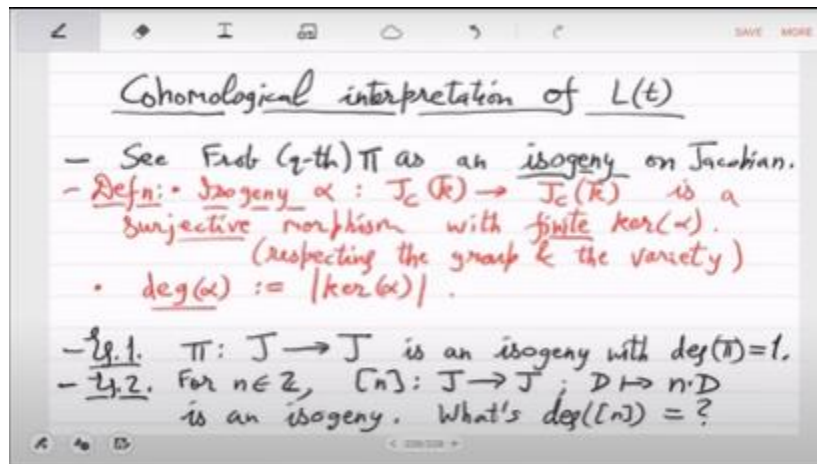 SAVE MORE
Cohomological interpretation of L(t)
– See Frob (q-th) π as an isogeny on Jacobian.
– Defn: • Isogeny α : J_C(k̄) → J_C(k̄) is a
surjective morphism with finite ker(α).
(respecting the group & the variety)
• deg(α) := |ker(α)|.
– Eg.1. π: J → J is an isogeny with deg(π)=1.
– Eg.2. For n∈ℤ, [n]: J → J ; D ↦ n·D
is an isogeny. What's deg([n]) = ?